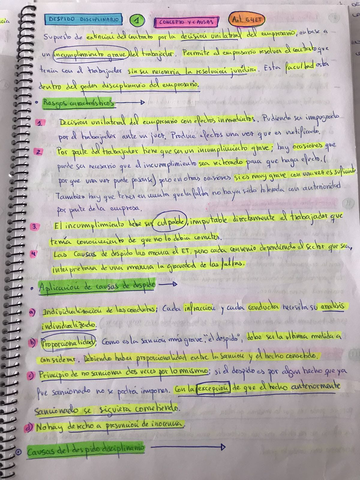 DESPIDO DISCIPLINARIO 1 CONCEPTO Y CAUSAS Art. 54 ET
Supuesto de extinción del contrato por la decisión unilateral del empresario en base a
un incumplimiento grave del trabajador. Permite al empresario resolver el contrato que
tenía con el trabajador sin ser necesaria la resolución jurídica. Esta facultad está
dentro del poder disciplinario del empresario.
• Rasgos característicos
1 Decisión unilateral del empresario con efectos inmediatos. Pudiendo ser impugnada
por el trabajador ante un juez. Produce efectos una vez que es notificada.
2 Por parte del trabajador tiene que ser un incumplimiento grave; hay ocasiones que
puede ser necesario que el incumplimiento sea reiterado para que haga efecto, (
por que una vez puede pasarse) pero en otras ocasiones si es muy grave con una vez es suficiente
También hay que tener en cuenta que la falta no haya sido tolerada con anterioridad
por parte de la empresa.
3 El incumplimiento debe ser culpable, imputable directamente al trabajador que
tenía conocimiento de que no lo debía cometer.
4 Las causas de despido las marca el ET, pero cada convenio dependiendo al sector que sea,
interpretan de una manera la gravedad de las faltas.
• Aplicación de causas de despido
a) Individualización de las conductas: Cada infracción y cada conducta necesita su análisis
individualizado.
b) Proporcionalidad: Como es la sanción mas grave, "el despido", debe ser la última medida a
considerar, habiendo habido proporcionalidad entre la sanción y el hecho cometido.
c) Principio de no sancionar dos veces por lo mismo: si el despido es por algún hecho que ya
fue sancionado no se podría imponer. Con la excepción de que el hecho anteriormente
sancionado se siguiera cometiendo.
d) No hay derecho a presunción de inocencia.
• Causas del despido disciplinario